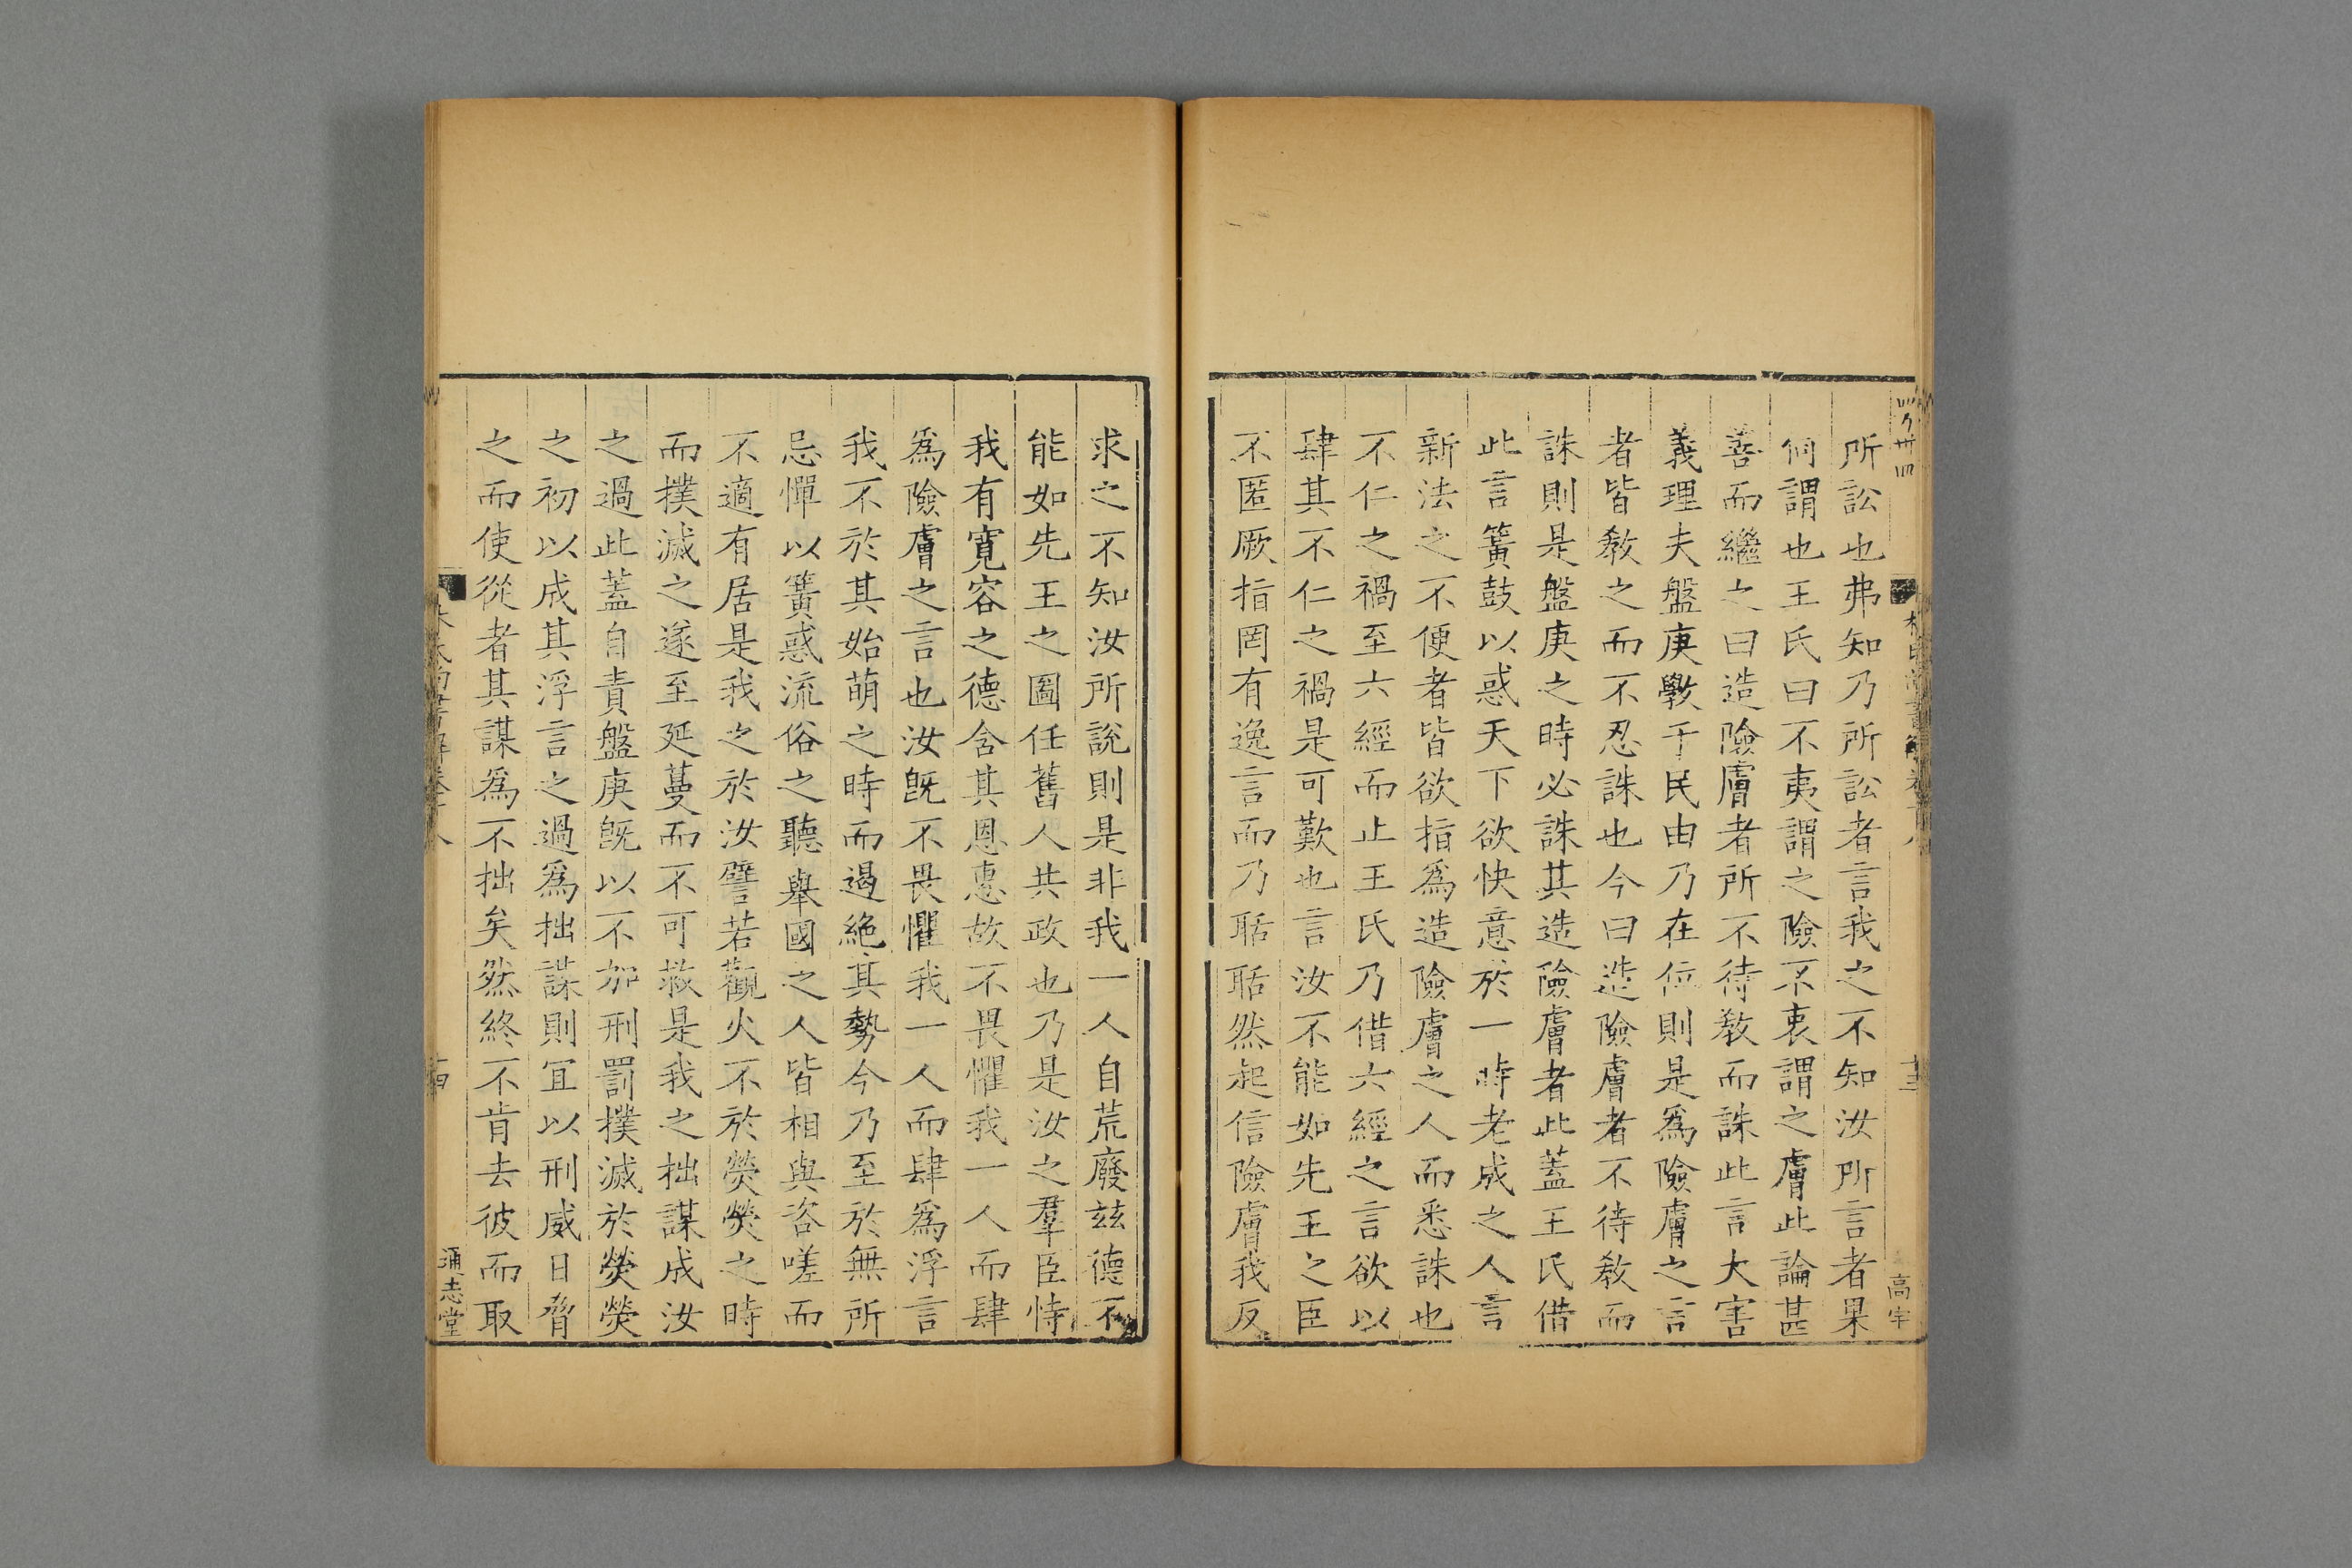 所訟也弗知乃所訟者言我之不知汝所言者果
何謂也王氏曰不夷謂之險不衷謂之膚此論甚
善而繼之曰造險膚者所不待教而誅此言大害
義理夫盤庚斆于民由乃在位則是爲險膚之言
者皆教之而不忍誅也今曰造險膚者不待教而
誅則是盤庚之時必誅其造險膚者此蓋王氏借
此言簧鼓以惑天下欲快意於一時老成之人言
新法之不便者皆欲指爲造險膚之人而悉誅也
不仁之禍至六經而止王氏乃借六經之言欲以
肆其不仁之禍是可歎也言汝不能如先王之臣
不匿厥指罔有逸言而乃聒聒然起信險膚我反
高宇
求之不知汝所說則是非我一人自荒廢兹德不
能如先王之圖任舊人共政也乃是汝之羣臣恃
我有寬容之德含其恩惠故不畏懼我一人而肆
爲險膚之言也汝旣不畏懼我一人而肆爲浮言
我不於其始萌之時而遏絶其勢今乃至於無所
忌憚以簧惑流俗之聽舉國之人皆相與咨嗟而
不適有居是我之於汝譬若觀火不於熒熒之時
而撲滅之遂至延蔓而不可救是我之拙謀成汝
之過此蓋自責盤庚旣以不加刑罰撲滅於熒熒
之初以成其浮言之過爲拙謀則宜以刑威日脅
之而使從者其謀爲不拙矣然終不肯去彼而取
十四
通志堂